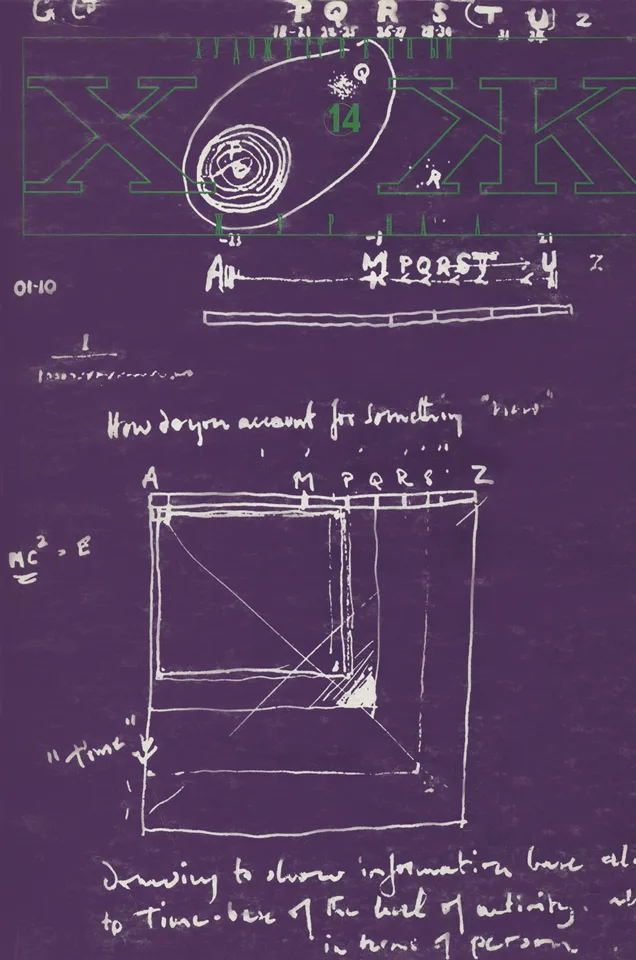 P Q R S (T U) Z
18-21 22-25 26-27 28-30 31
ХУДОЖЕСТВЕННЫЙ
ХЖ
Q
14
R
ЖУРНАЛ
-23 21
A M P Q R S T U Z
01-10
1
How do you account for something "new"
A M P Q R S Z
MC² = E
"time"
Drawing to show information base
to Time-base of the level of activity.
in terms of person